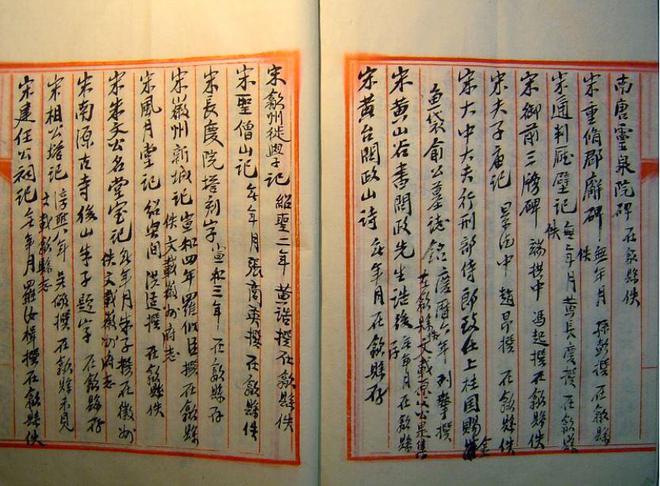 南唐靈泉院碑 在歙縣佚
宋重脩郡廨碑 無年月 孫彭撰 在歙縣佚
宋通判廳壁記 無年月 黃長慶撰 在歙縣佚
宋御前三牓碑 端拱中 馮起撰 在歙縣佚
宋夫子庙記 景德中 趙昂撰 在歙縣佚
宋大中大夫行刑部侍郎致仕上柱國賜金
魚袋俞公墓誌銘 慶曆六年 撰 在歙縣 文載 公集
宋黃山谷書問政先生誥後 無年月 在歙縣存
宋黃台問政山诗 無年月 在歙縣存
宋歙州徙學記 紹聖二年 黃誥撰 在歙縣佚
宋聖僧山記 無年月 張商英撰 在歙縣佚
宋長慶院塔刻字 宣和三年 在歙縣存
宋徽州新城記 宣和四年 羅似臣撰 在歙縣佚文載徽州府志
宋風月堂記 紹興間 洪适撰 在歙縣佚
宋朱文公名堂室記 無年月 朱子撰 在徽州佚文載徽州府志
宋南源古寺後山朱子題字 在歙縣存
宋相公塔記 淳熙八年 吳儆撰 在歙縣未見 文載歙縣志
宋建任公祠記 無年月 羅汝楫撰 在歙縣佚